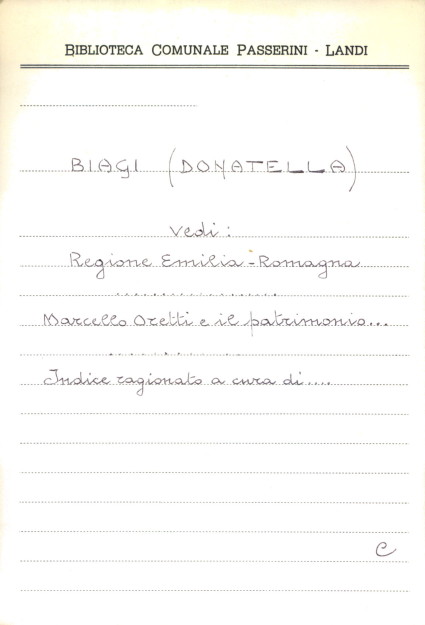 BIBLIOTECA COMUNALE PASSERINI - LANDI
BIAGI (DONATELLA)
Vedi:
Regione Emilia-Romagna
.................
Marcello Oretti e il patrimonio...
................
Indice ragionato a cura di....
C